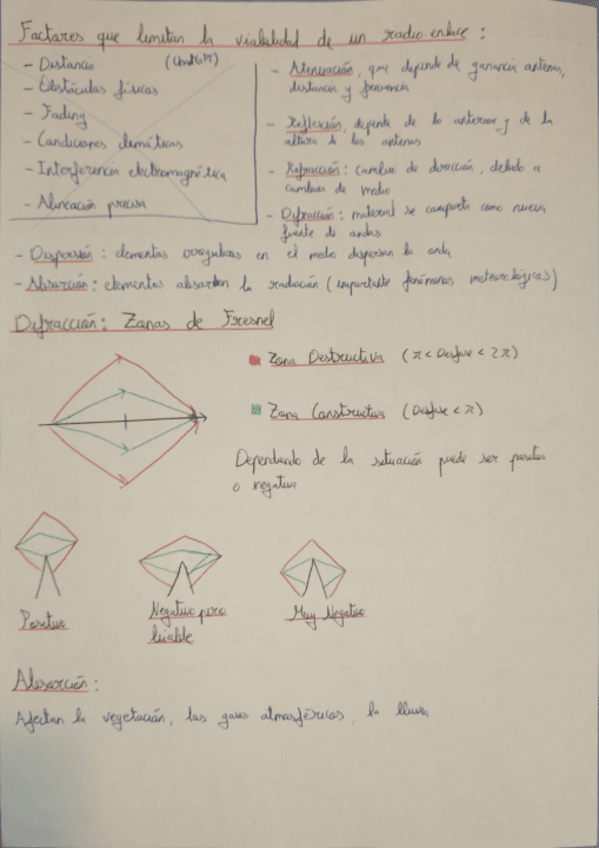 Factores que limitan la viabilidad de un radio enlace:
- Distancia (ChatGPT)
- Obstáculos físicos
- Fading
- Condiciones climáticas
- Interferencia electromagnética
- Alineación precisa
- Atenuación, que depende de ganancia antena,
distancia y frecuencia
- Reflexión, depende de lo anterior y de la
altura de las antenas
- Refracción: cambio de dirección, debido a
cambios de medio
- Difracción: material se comporta como nueva
fuente de ondas
- Dispersión: elementos irregulares en el medio dispersan la onda
- Absorción: elementos absorben la radiación (importante fenómenos meteorológicos)
Difracción: Zonas de Fresnel
Zona Destructiva (π < Desfase < 2π)
Zona Constructiva (Desfase < π)
Dependiendo de la situación puede ser positiva
o negativa
Positivo
Negativo pero
viable
Muy Negativo
Absorción:
Afectan la vegetación, los gases atmosféricos, la lluvia